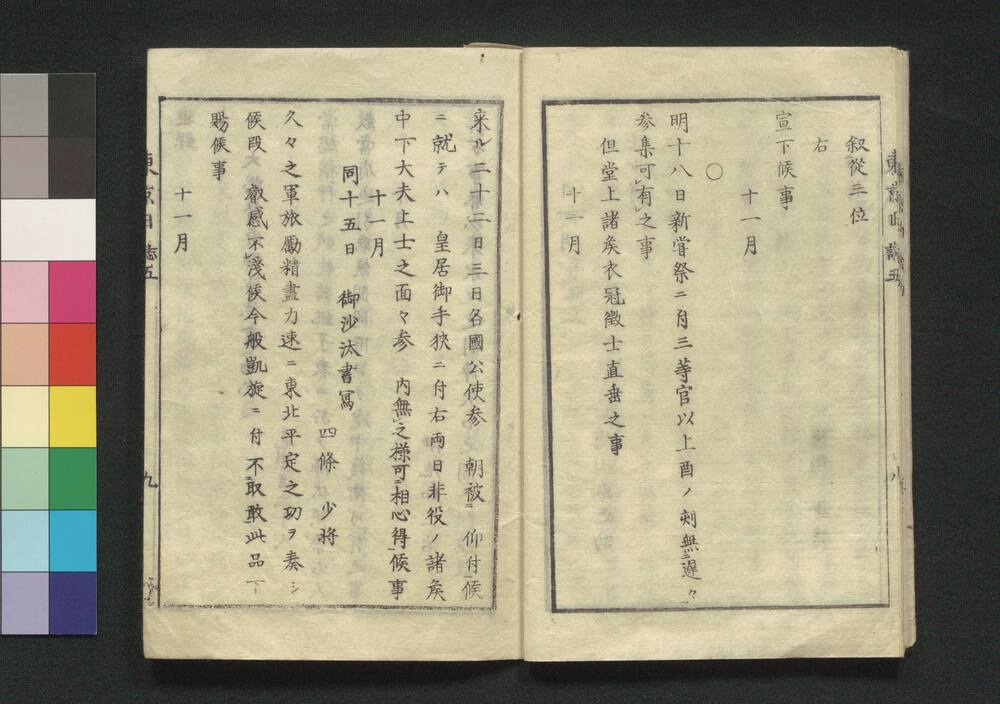 叙從三位
右
宣下候事
十一月
〇
明十八日新甞祭ニ付三等官以上酉ノ刻無遅々
参集可有之事
但堂上諸矦衣冠徴士直垂之事
十一月
東京日誌五
八
来ル二十二日三日各國公使参 朝被 仰付候
ニ就テハ 皇居御手狹ニ付右両日非役ノ諸矦
中下大夫上士之面々参 内無之様可相心得候事
十一月
同十五日 御沙汰書寫
四條 少将
久々之軍旅勵精盡力速ニ東北平定之功ヲ奏シ
候段 叡感不淺候今般凱旋ニ付不取敢此品下
賜候事
十一月
東京日誌五
九